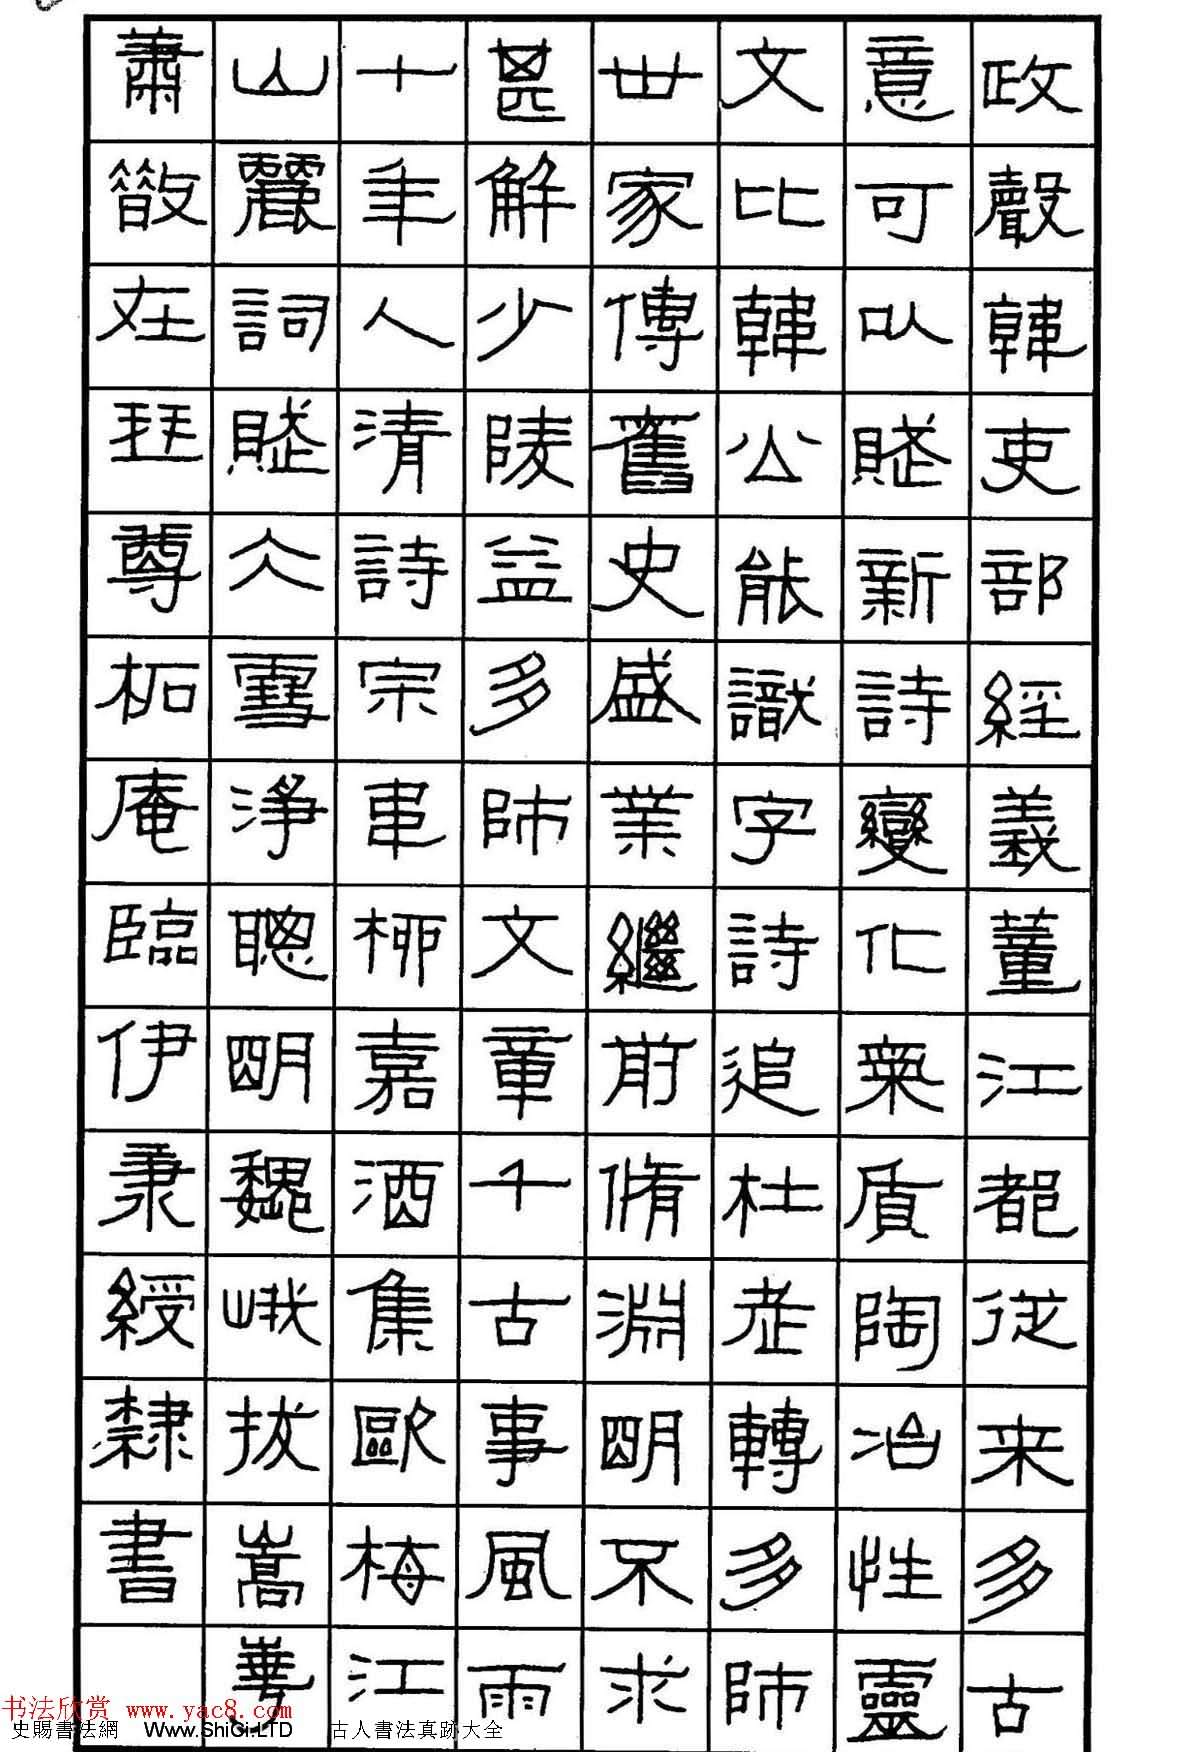 政聲韓吏部經義董江都從来多古
意可以賦新詩變化氣質陶冶性靈
文比韓公能識字詩追杜老轉多師
世家傳舊史盛業繼前脩淵明不求
甚解少陵益多師文章千古事風雨
十年人清詩宗串柳嘉酒集歐梅江
山麗詞賦大雪淨聰明魏峨拔嵩華
蕭散在琴尊柘庵臨伊秉綬隸書
书法欣赏 www.yac8.com
史賜書法網 Www.ShiGi.LTD 古人書法真跡大全